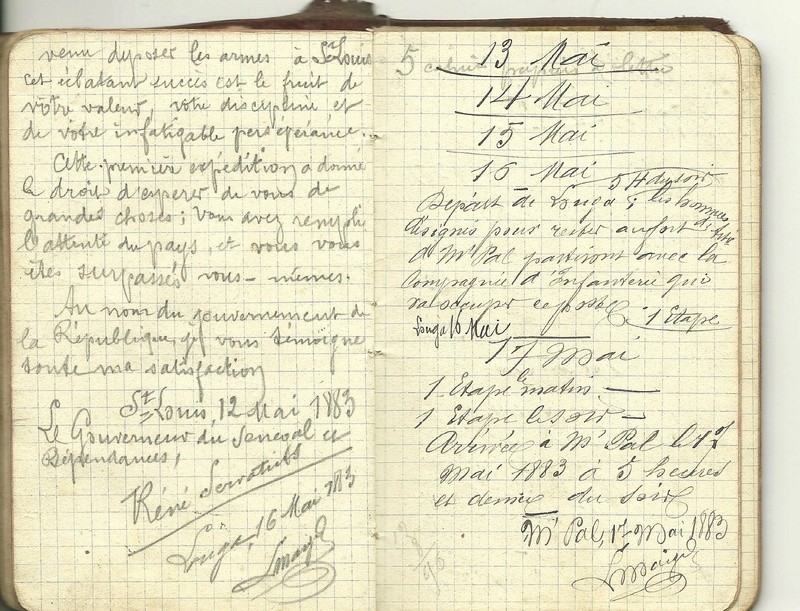 venu deposer les armes à St Louis
cet éclatant succès est le fruit de
votre valeur, votre discipline et
de votre infatigable persépérance.
Cette première expédition a donné
le droit d'esperer de vous de
grandes choses; vous avez rempli
l'attente du pays, et vous vous
êtes surpassés vous-mêmes.
Au nom du gouvernement de
la République, je vous témoigne
toute ma satisfaction
St Louis, 12 Mai 1883
Le Gouverneur du Senegal et
Dépendances,
Réné Servatius
Louga, 16 Mai 883
5
13 Mai
14 Mai
15 Mai
16 Mai
5 H du soir
Départ de Louga; les hommes
désignés pour rester au fort
de M' Pal partiront avec la
Compagnie d'Infanterie qui
va occuper ce poste
1 Etape
Louga 16 Mai
17 Mai
1 Etape le matin
1 Etape le soir
Arrivée à M' Pal le 17
Mai 1883 à 5 heures
et demie du soir
M' Pal, 17 Mai 1883